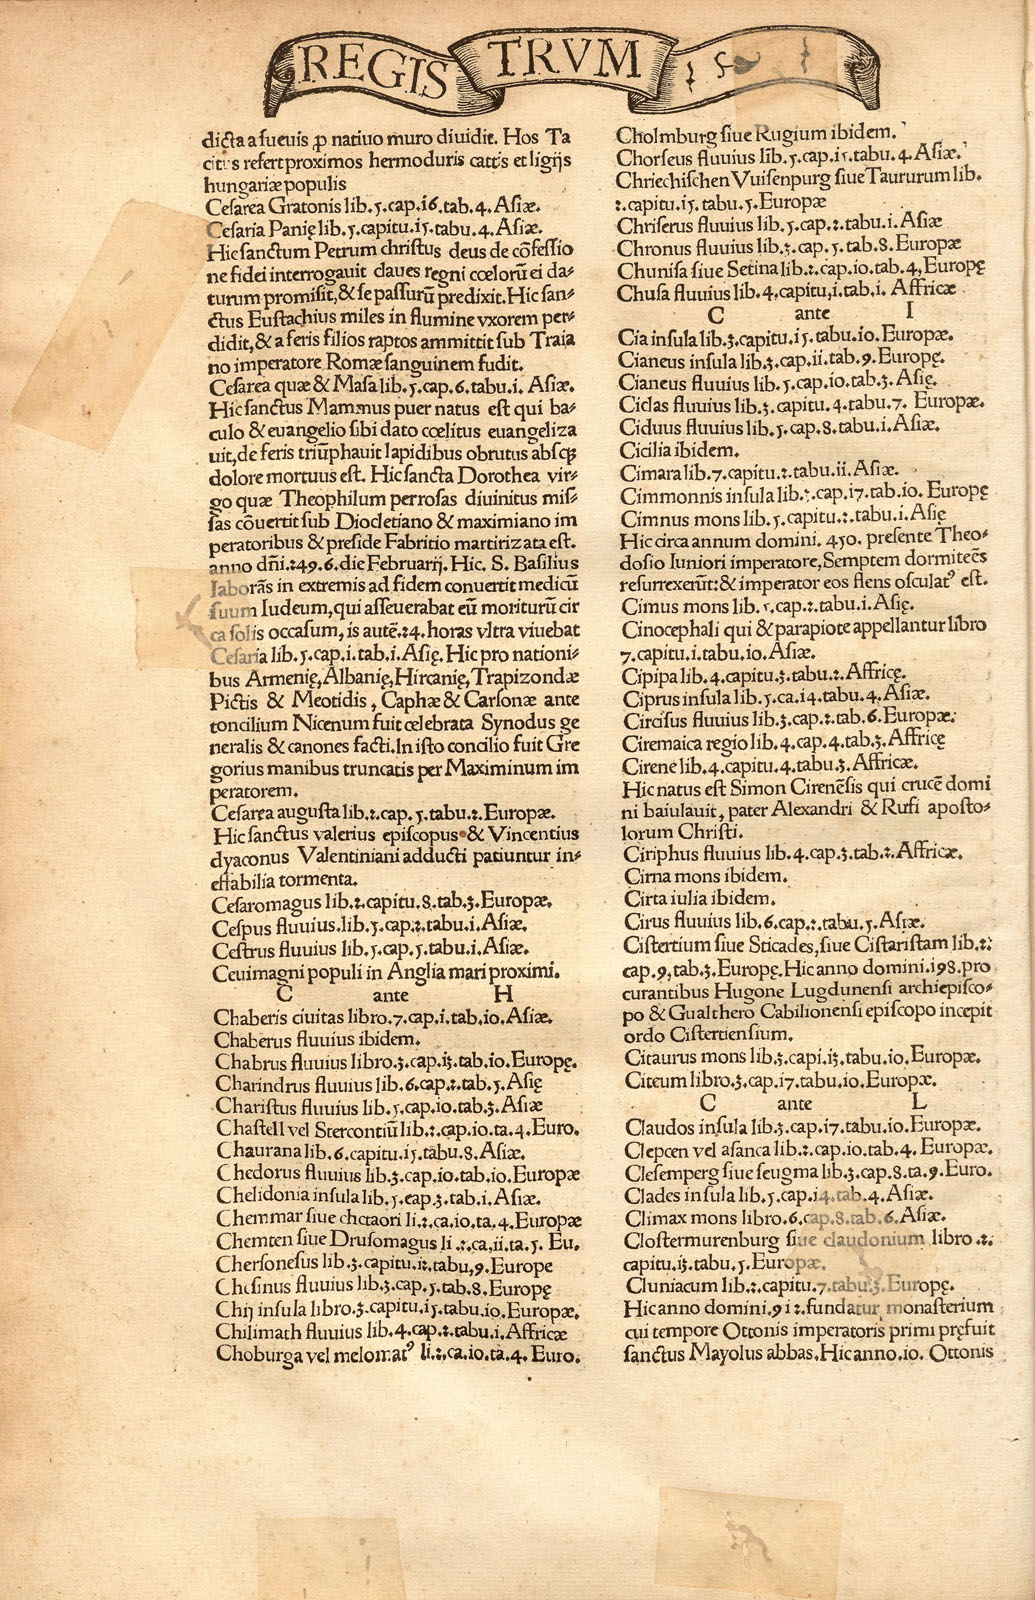 REGIS TRVM
dicta a sueuis ꝑ natiuo muro diuidit. Hos Ta
citus refert proximos hermoduris cattis et ligijs
hungariæ populis
Cesarea Gratonis lib.5.cap.i6.tab.4.Asiæ.
Cesaria Panię lib.5.capitu.i5.tabu.4.Asiæ.
Hic sanctum Petrum christus deus de cōfessio
ne fidei interrogauit claues regni cœlorū ei da⸗
turum promisit,& se passurū predixit. Hic san⸗
ctus Eustachius miles in flumine vxorem per⸗
didit,& a feris filios raptos ammittit sub Traia
no imperatore Romæ sanguinem fudit.
Cesarea quæ & Masa lib.5.cap.6.tabu.i. Asiæ.
Hic sanctus Mammus puer natus est qui ba⸗
culo & euangelio sibi dato cœlitus euangeliza
uit,de feris triūphauit lapidibus obrutus absq̨
dolore mortuus est. Hic sancta Dorothea vir⸗
go quæ Theophilum per rosas diuinitus mis⸗
sas cōuertit sub Diocletiano & maximiano im
peratoribus & preside Fabritio martirizata est.
anno dñi.249.6.die Februarij. Hic. S. Basilius
laborās in extremis ad fidem conuertit medicū
suum Iudeum,qui asseuerabat eū moriturū cir
ca solis occasum, is autē.24.horas vltra viuebat
Cesaria lib.5.cap.i.tab.i.Asię. Hic pro nationi⸗
bus Armenię,Albanię,Hircanię,Trapizondæ
Pictis & Meotidis , Caphæ & Carsonæ ante
toncilium Nicenum fuit celebrata Synodus ge
neralis & canones facti.In isto concilio fuit Gre
gorius manibus truncatis per Maximinum im
peratorem.
Cesarea augusta lib.2.cap.5.tabu.2.Europæ.
Hic sanctus valerius episcopus & Vincentius
dyaconus Valentiniani adducti patiuntur in⸗
effabilia tormenta.
Cesaromagus lib.2.capitu.8.tab.3.Europæ.
Cespus fluuius.lib.5.cap.2.tabu.i.Asiæ.
Cestrus fluuius lib.5.cap.5.tabu.i.Asiæ.
Ceuimagni populi in Anglia mari proximi.
C ante H
Chaberis ciuitas libro.7.cap.i.tab.io.Asiæ.
Chaberus fluuius ibidem.
Chabrus fluuius libro.3.cap.i3.tab.io.Europę.
Charindrus fluuius lib.6.cap.2.tab.5.Asię
Charistus fluuius lib.5.cap.io.tab.3.Asiæ
Chastell vel Stercontiū lib.2.cap.io.ta.4.Euro.
Chaurana lib.6.capitu.i5.tabu.8.Asiæ.
Chedorus fluuius lib.3.cap.io.tab.io.Europæ
Chelidonia insula lib.5.cap.3.tab.i.Asiæ.
Chemmar siue chetaori li.2.ca.io.ta.4.Europæ
Chemten siue Drusomagus li.2.ca,ii.ta.5. Eu.
Chersonesus lib.3.capitu.i2.tabu,9.Europe
Chesinus fluuius lib.3.cap.5.tab.8.Europę
Chij insula libro.3.capitu.i5.tabu.io.Europæ.
Chilimath fluuius lib.4.cap.2.tabu.i.Affricæ
Choburga vel melomatꝰ li.2.ca.io.ta.4. Euro.
Cholmburg siue Rugium ibidem.
Chorseus fluuius lib.5.cap.i5.tabu.4.Asiæ.
Chriechischen Vuisenpurg siue Taururum lib.
2.capitu.i5.tabu.5.Europæ
Chriserus fluuius lib.5.cap.2.tabu.i.Asiæ
Chronus fluuius lib.3.cap.5.tab.8.Europæ
Chunisa siue Setina lib.2.cap.io.tab.4,Europę
Chusa fluuius lib.4.capitu,i.tab.i. Affricæ
C ante I
Cia insula lib.3.capitu.i5.tabu.io.Europæ.
Cianeus insula lib.3.cap.ii.tab.9.Europę.
Cianeus fluuius lib.5.cap.io.tab.3.Asię.
Ciclas fluuius lib.3.capitu.4.tabu.7. Europæ.
Ciduus fluuius lib.5.cap.8.tabu.i.Asiæ.
Cicilia ibidem.
Cimara lib.7.capitu.2.tabu.ii.Asiæ.
Cimmonnis insula lib.2.cap.i7.tab.io. Europę
Cimnus mons lib.5.capitu.2.tabu.i.Asię
Hic circa annum domini. 450. presente Theo⸗
dosio Iuniori imperatore,Semptem dormitēs
resurrexerūt:& imperator eos flens osculatꝰ est.
Cimus mons lib.5.cap.2.tabu.i.Asię.
Cinocephali qui & parapiote appellantur libro
7.capitu.i.tabu.io.Asiæ.
Cipipa lib.4.capitu.3.tabu.2.Affricę.
Ciprus insula lib.5.ca.i4.tabu.4.Asiæ.
Circisus fluuius lib.3.cap.2.tab.6.Europæ.
Ciremaica regio lib.4.cap.4.tab.3.Affricę
Cirene lib.4.capitu.4.tabu.3.Affricæ.
Hic natus est Simon Cirenēsis qui crucē domi
ni baiulauit, pater Alexandri & Rufi aposto⸗
lorum Christi.
Ciriphus fluuius lib.4.cap.3.tab.2.Affricæ.
Cirna mons ibidem.
Cirta iulia ibidem.
Cirus fluuius lib.6.cap.2.tabu.5.Asiæ.
Cistertium siue Sticades,siue Cistaristam lib.2.
cap.9,tab.3.Europę.Hic anno domini.i98.pro
curantibus Hugone Lugdunensi archiepisco⸗
po & Gualthero Cabilionensi episcopo incepit
ordo Cistertiensium.
Citaurus mons lib.3.capi.i3.tab.io.Europæ.
Citeum libro.3.cap.i7.tabu,io.Europæ.
C ante L
Claudos insula lib.3.cap.i7.tabu.io.Europæ.
Clepcen vel asanca lib.2.cap.io.tab.4. Europæ.
Clesemperg siue seugma lib.3.cap.8.ta.9.Euro.
Clades insula lib.5.cap.i4.tab.4.Asiæ.
Climax mons libro.6.cap.8.tab.6.Asiæ.
Clostermurenburg siue claudonium libro.2.
capitu.i3.tabu.5.Europæ.
Cluniacum lib.2.capitu.7.tabu.3.Europę.
Hic anno domini.9i2.fundatur monasterium
cui tempore Ottonis imperatoris primi pręfuit
sanctus Mayolus abbas.Hic anno.io. Ottonis